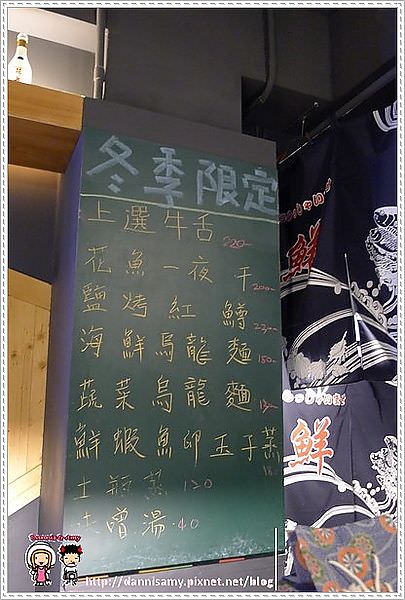 冬季限定
上選牛舌 220-
花魚一夜干 200-
鹽烤紅鱒 220-
海鮮烏龍麵 150-
蔬菜烏龍麵
鮮蝦魚卵玉子蒸
土瓶蒸 120
味噌湯 40
鮮
鮮
Dannis & Amy
http://dannisamy.pixnet.net/blog